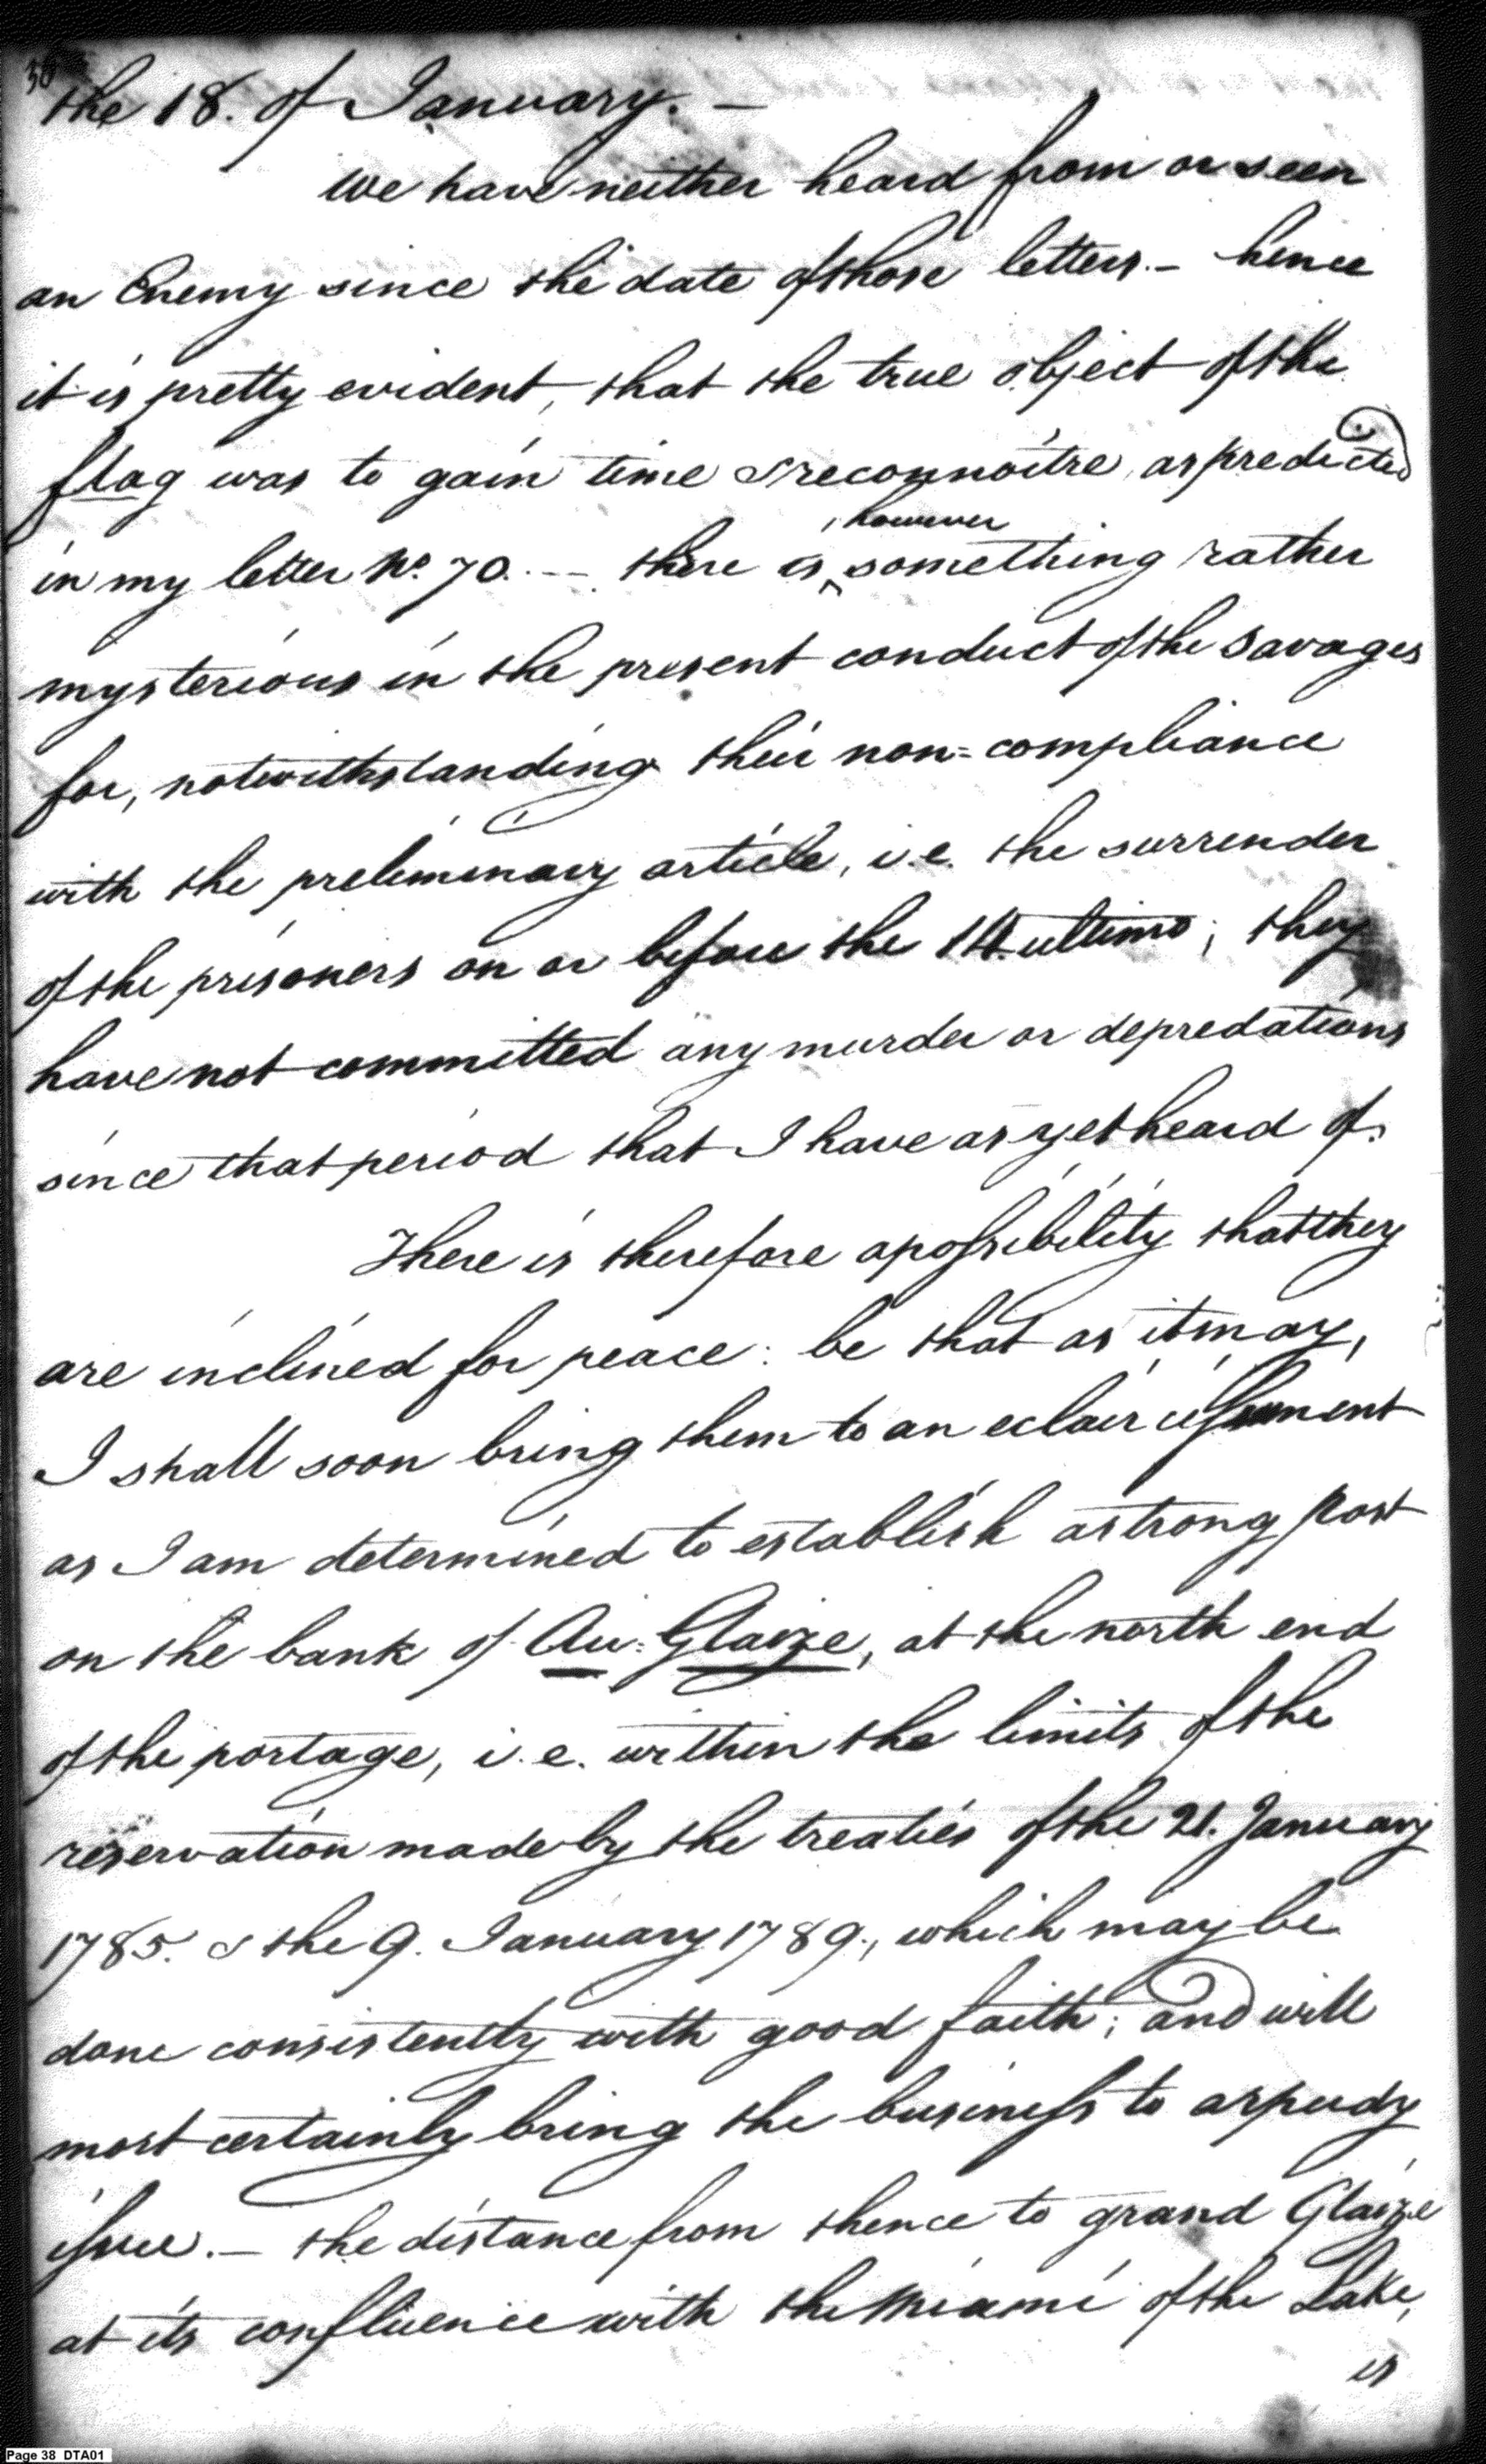 38
the 18. of January. —
we have neither heard from or seen
an Enemy since the date of those letters. — hence
it is pretty evident, that the true object of the
flag was to gain time & reconnoitre, as predicted
in my letter No. 70. — there is, however something rather
mysterious in the present conduct of the savages
for, notwithstanding their non=compliance
with the preliminary article, i.e. the surrender
of the prisoners on or before the 14. ultimo; they
have not committed any murder or depredations
since that period that I have as yet heard of.
There is therefore a possibility that they
are inclined for peace: be that as it may,
I shall soon bring them to an eclaircissement
as I am determined to establish a strong post
on the bank of Au=Glaize, at the north end
of the portage, i.e. within the limits of the
reservation made by the treaties of the 21. January
1785. & the 9. January 1789., which may be
done consistently with good faith; and will
most certainly bring the business to a speedy
issue. — the distance from thence to grand Glaize
at its confluence with the Miami of the Lake,
is
Page 38 DTA01